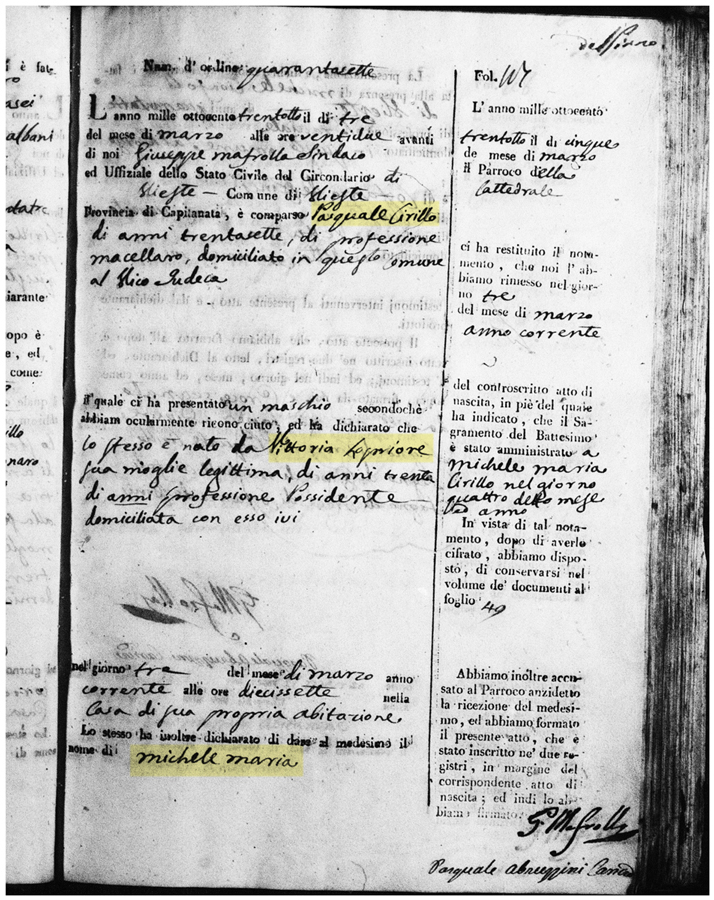 Num. d' ordine quarantasette
L' anno mille ottocento trentotto il dì tre
del mese di marzo alle ore ventidue avanti
di noi Giuseppe Mafrolla Sindaco
ed Uffiziale dello Stato Civile del Circondario di
Vieste — Comune di Vieste
Provincia di Capitanata, è comparso Pasquale Cirillo
di anni trentasette, di professione
macellaro, domiciliato in questo comune
al Vico Judeca
il quale ci ha presentato un maschio secondochè
abbiam ocularmente riconosciuto, ed ha dichiarato che
lo stesso è nato da Vittoria Lopriore
sua moglie legittima, di anni trenta
di anni professione Possidente
domiciliata con esso ivi
nel giorno tre del mese di marzo anno
corrente alle ore diecissette nella
Casa di sua propria abitazione
Lo stesso ha inoltre dichiarato di dare al medesimo il
nome di michele maria
Fol.
L' anno mille ottocento
trentotto il dì cinque
de mese di marzo
il Parroco della
Cattedrale
ci ha restituito il nota-
mento, che noi l' ab-
biamo rimesso nel gior-
no tre
del mese di marzo
anno corrente
del controscritto atto di
nascita, in piè del quale
ha indicato, che il Sa-
gramento del Battesimo
è stato amministrato a
michele maria
Cirillo nel giorno
quattro dello mese
ed anno
In vista di tal nota-
mento, dopo di averlo
cifrato, abbiamo dispo-
sto, di conservarsi nel
volume de' documenti al
foglio 49
Abbiamo inoltre accu-
sato al Parroco anzidetto
la ricezione del medesi-
mo, ed abbiamo formato
il presente atto, che è
stato inscritto ne' due re-
gistri, in margine del
corrispondente atto di
nascita; ed indi lo ab-
biamo firmato.
G Mafrolla
Pasquale Abruzzini Canc